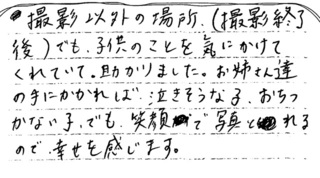 ・撮影以外の場所、(撮影終了
後)でも、子供のことを気にかけて
くれていて、助かりました。お姉さん達
の手にかかれば、泣きそうな子、おちつ
かない子、でも、笑顔で写真とれる
ので、幸せを感じます。